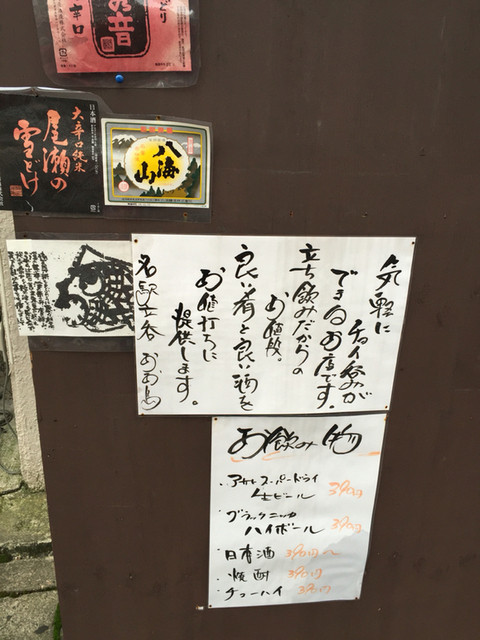 辛口
大辛口純米
尾瀬の
雪どけ
日本酒
八海山
気軽に
チョイ呑みが
できるお店です。
立ち飲みだからの
お値段。
良い肴と良い酒を
お値打ちに
提供します。
名駅立呑 おお島
お飲み物
・アサヒスーパードライ
生ビール 390円
・ブラックニッカ
ハイボール 390円
・日本酒 390円〜
・焼酎 390円
・チューハイ 390円